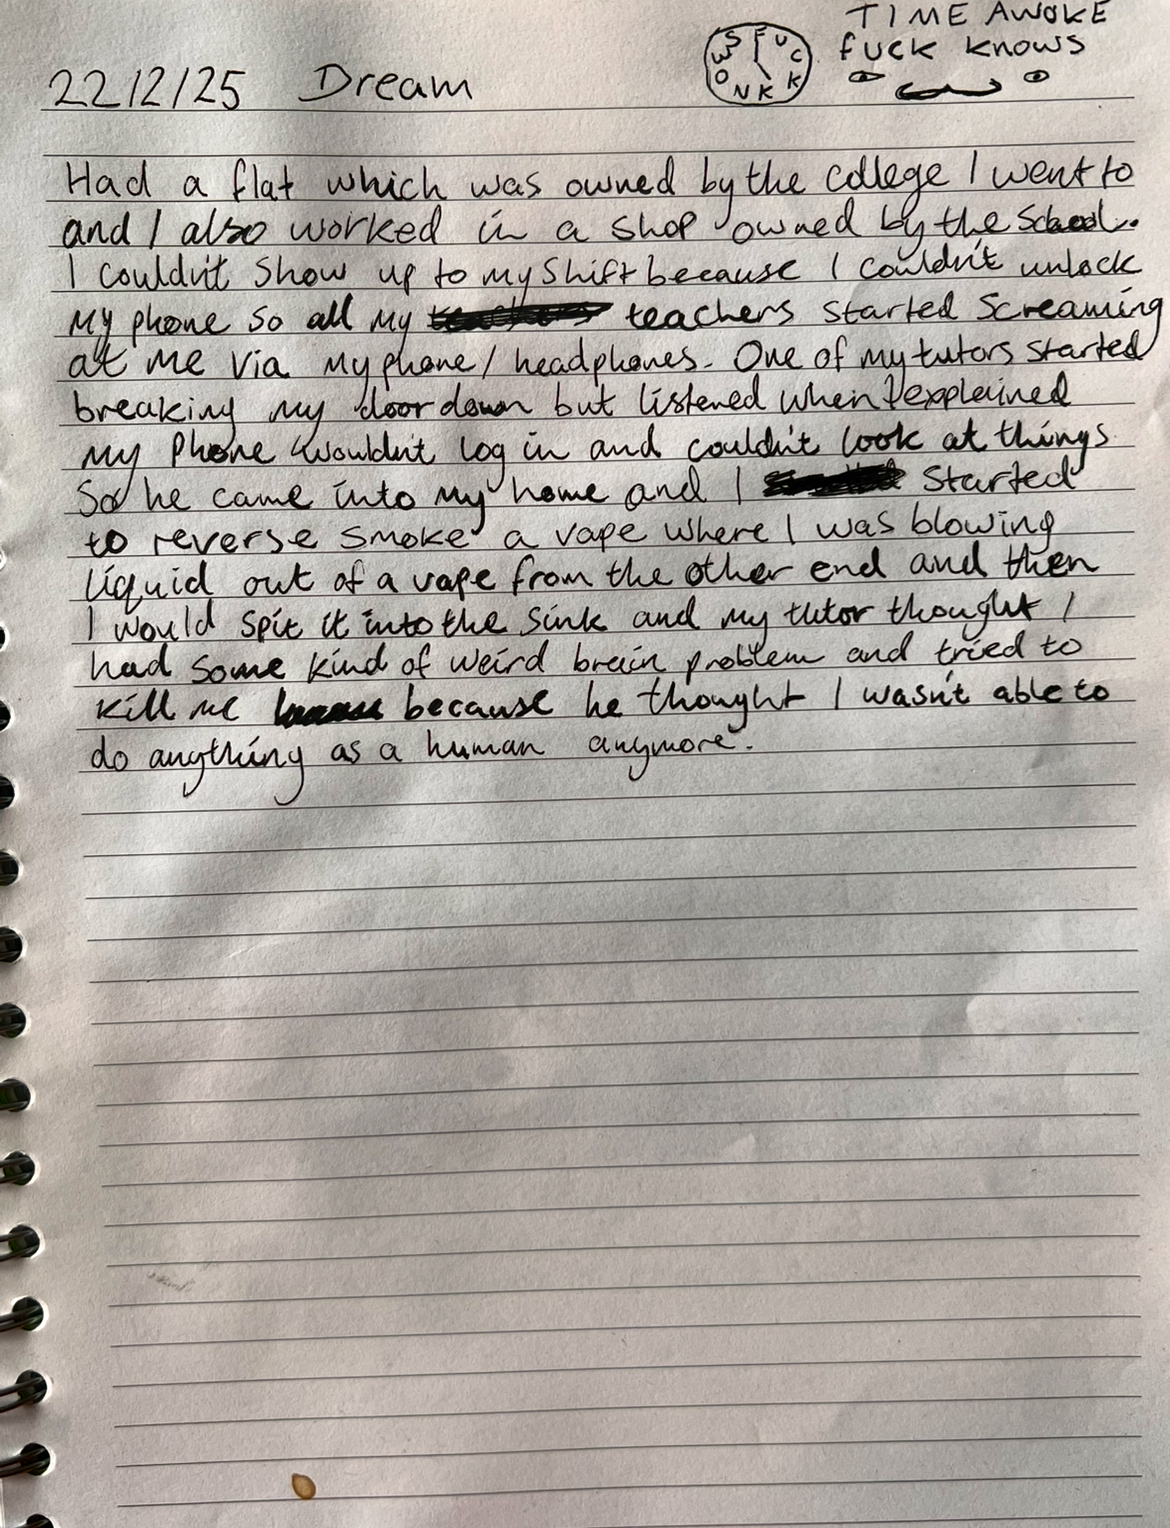 TIME AWOKE
fuck knows
FUCK KNOWS
22/2/25 Dream
Had a flat which was owned by the college I went to
and I also worked in a shop owned by the School.
I couldn't show up to my shift because I couldn't unlock
my phone so all my teachers started screaming
at me via my phone/headphones. One of my tutors started
breaking my door down but listened when I explained
my phone wouldn't log in and couldn't look at things
So he came into my home and I started
to reverse smoke a vape where I was blowing
liquid out of a vape from the other end and then
I would spit it into the sink and my tutor thought I
had some kind of weird brain problem and tried to
kill me because he thought I wasn't able to
do anything as a human anymore.